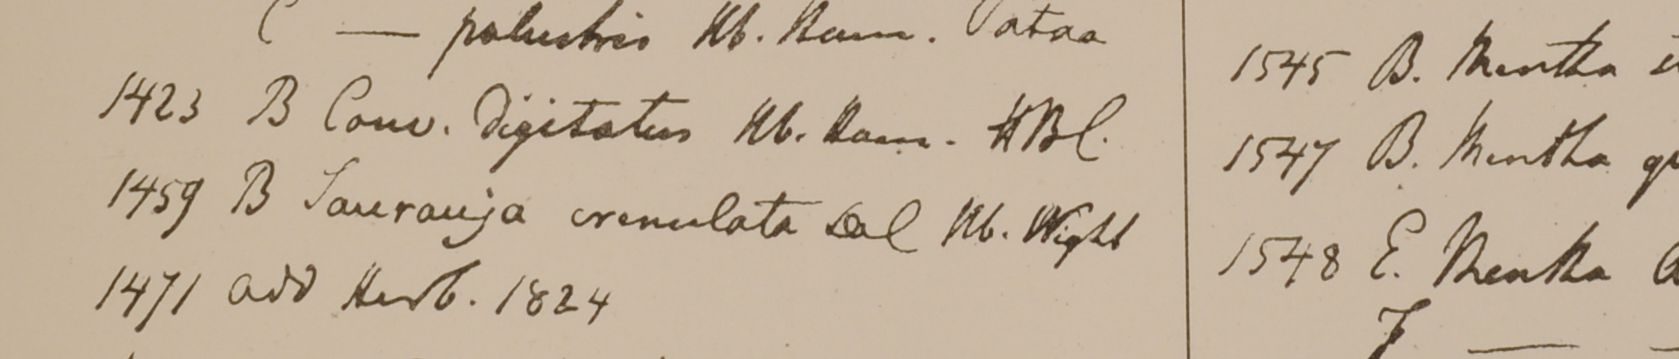 C — palustris Hb. Ham. Pataa
1423 B Conv. Digitatus Hb. Ham. HBC.
1459 B Saurauja crenulata Hb. Wight
1471 add Herb. 1824
1545 B. Mentha
1547 B. Mentha
1548 E. Mentha
F —